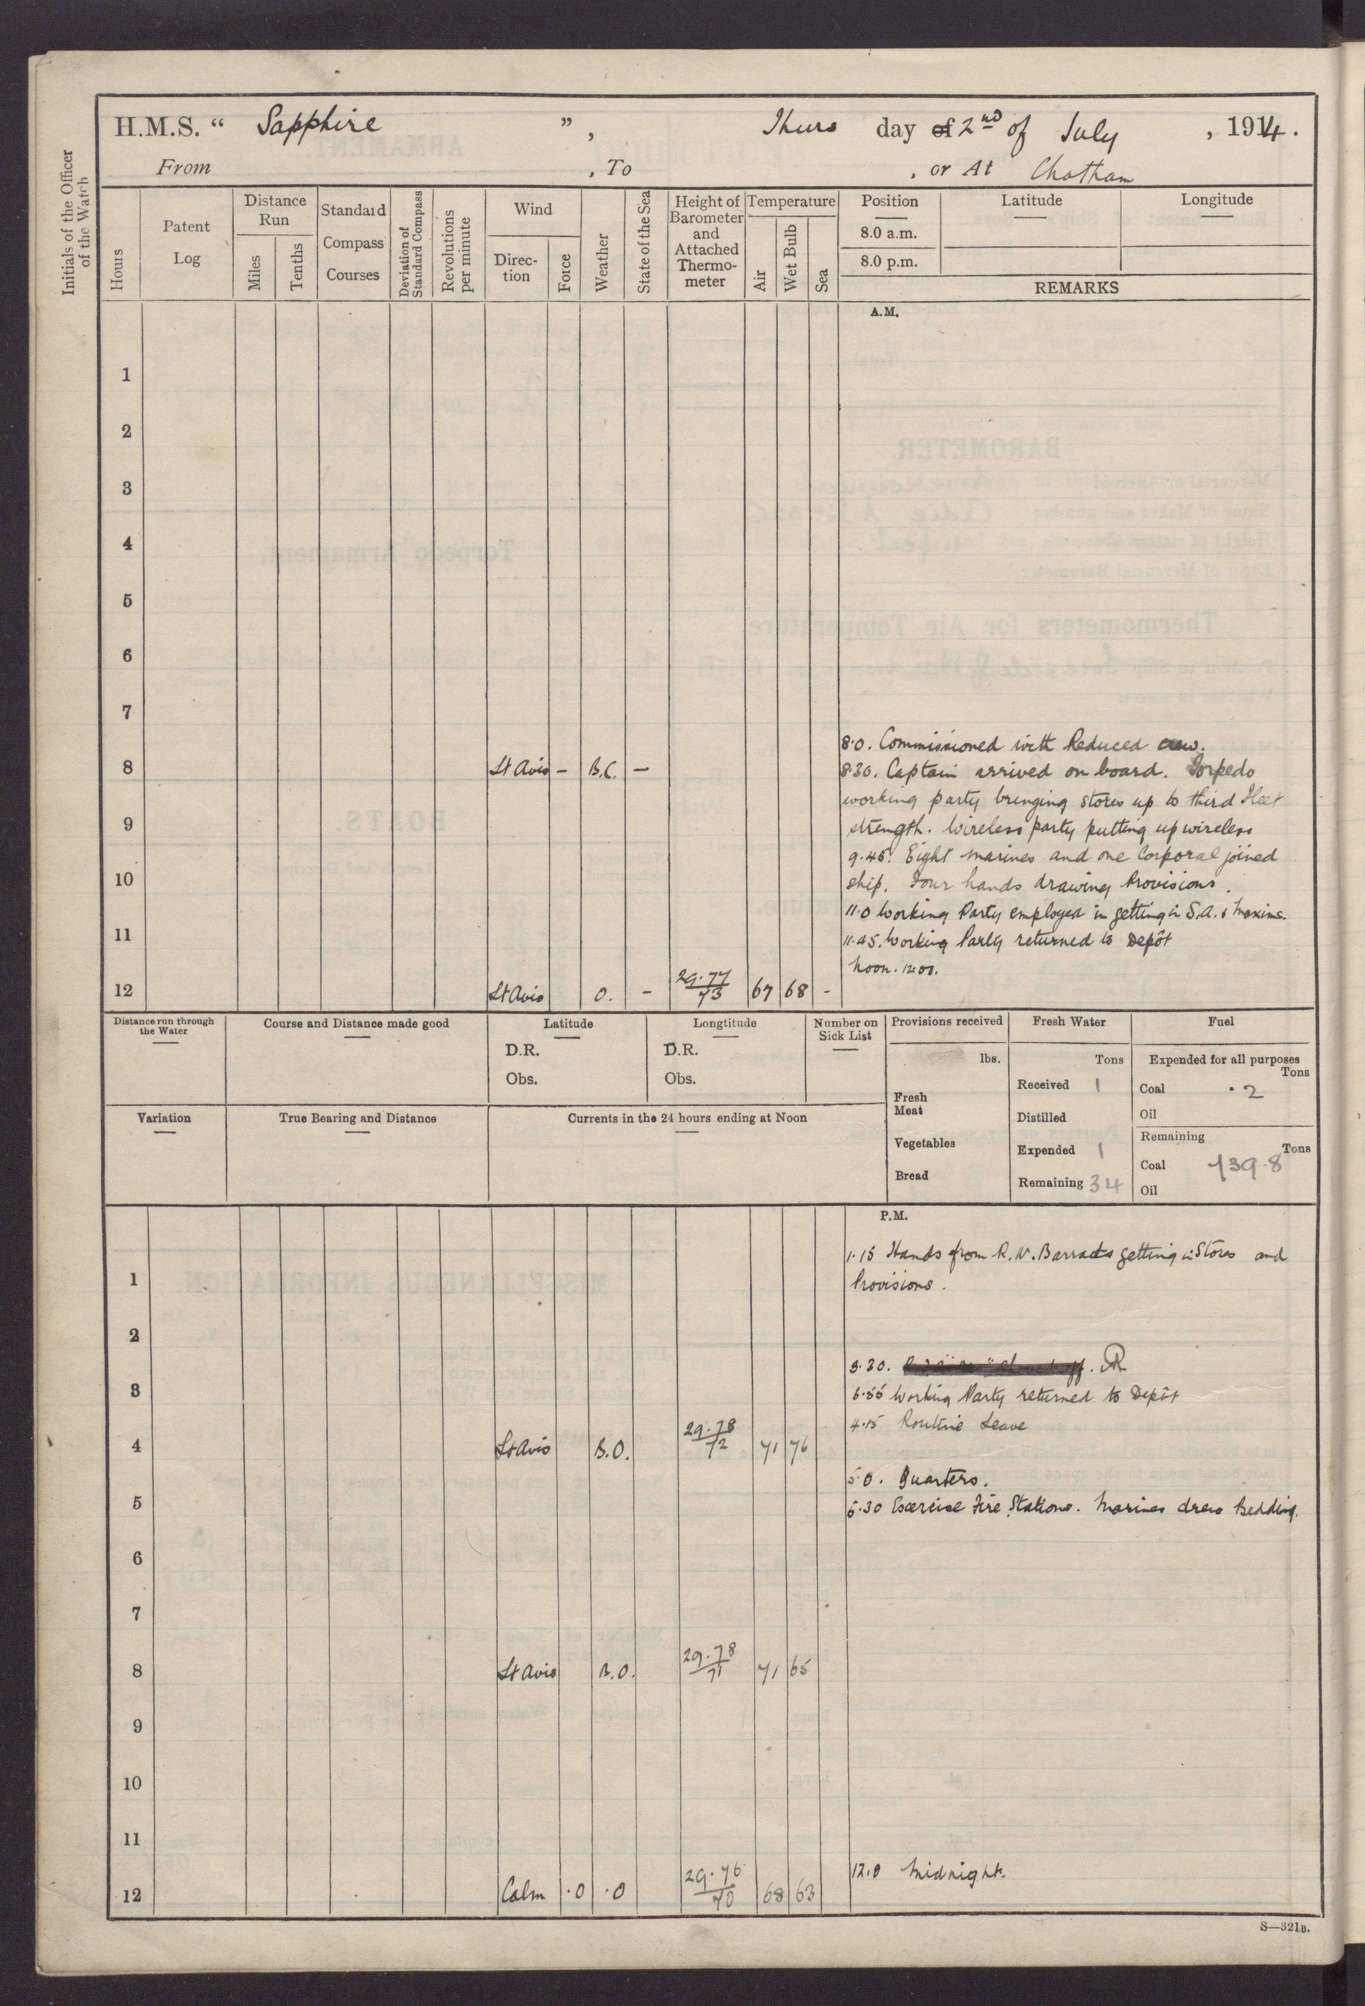 H.M.S. “ Sapphire ” , Thurs day of 2nd of July , 1914.
From , To , or At Chatham
Initials of the Officer of the Watch
Hours
Patent Log
Distance Run
Miles
Tenths
Standard Compass Courses
Deviation of Standard Compass
Revolutions per minute
Wind
Direc-tion
Force
Weather
State of the Sea
Height of Barometer and Attached Thermo-meter
Temperature
Air
Wet Bulb
Sea
Position
8.0 a.m.
8.0 p.m.
Latitude
Longitude
REMARKS
A.M.
1
2
3
4
5
6
7
8.0. Commissioned with Reduced crew.
8 Lt Airs – B.C. –
8.30. Captain arrived on board. Torpedo
working party bringing stores up to third Fleet
9
strength. Wireless party putting up wireless
9.45. Eight marines and one Corporal joined
10
ship. Four hands drawing Provisions.
11.0 Working Party employed in getting in S.A. & Maxims.
11
11.45. Working Party returned to Depôt
Noon. 12.00.
12 Lt Airs O. – 29.77/73 67 68 -
Distance run through the Water
Course and Distance made good
Latitude
D.R.
Obs.
Longtitude
D.R.
Obs.
Number on Sick List
Provisions received
lbs.
Fresh Meat
Vegetables
Bread
Fresh Water
Tons
Received 1
Distilled
Expended 1
Remaining 34
Fuel
Expended for all purposes
Tons
Coal .2
Oil
Remaining
Tons
Coal 139.8
Oil
Variation
True Bearing and Distance
Currents in the 24 hours ending at Noon
P.M.
1.15 Hands from R.N. Barracks getting in Stores and
1
Provisions.
2
3.30.
3
Working Party returned to Depôt
4.15 Routine Leave
4 Lt Airs B.O. 29.78/72 71 76
5.0. Quarters.
5
5.30 Exercise Fire Stations. Marines drew Bedding.
6
7
8 Lt Airs B.O. 29.78/71 71 65
9
10
11
12.0 Midnight.
12 Calm .0 .0 29.76/70 68 63
S—321B.